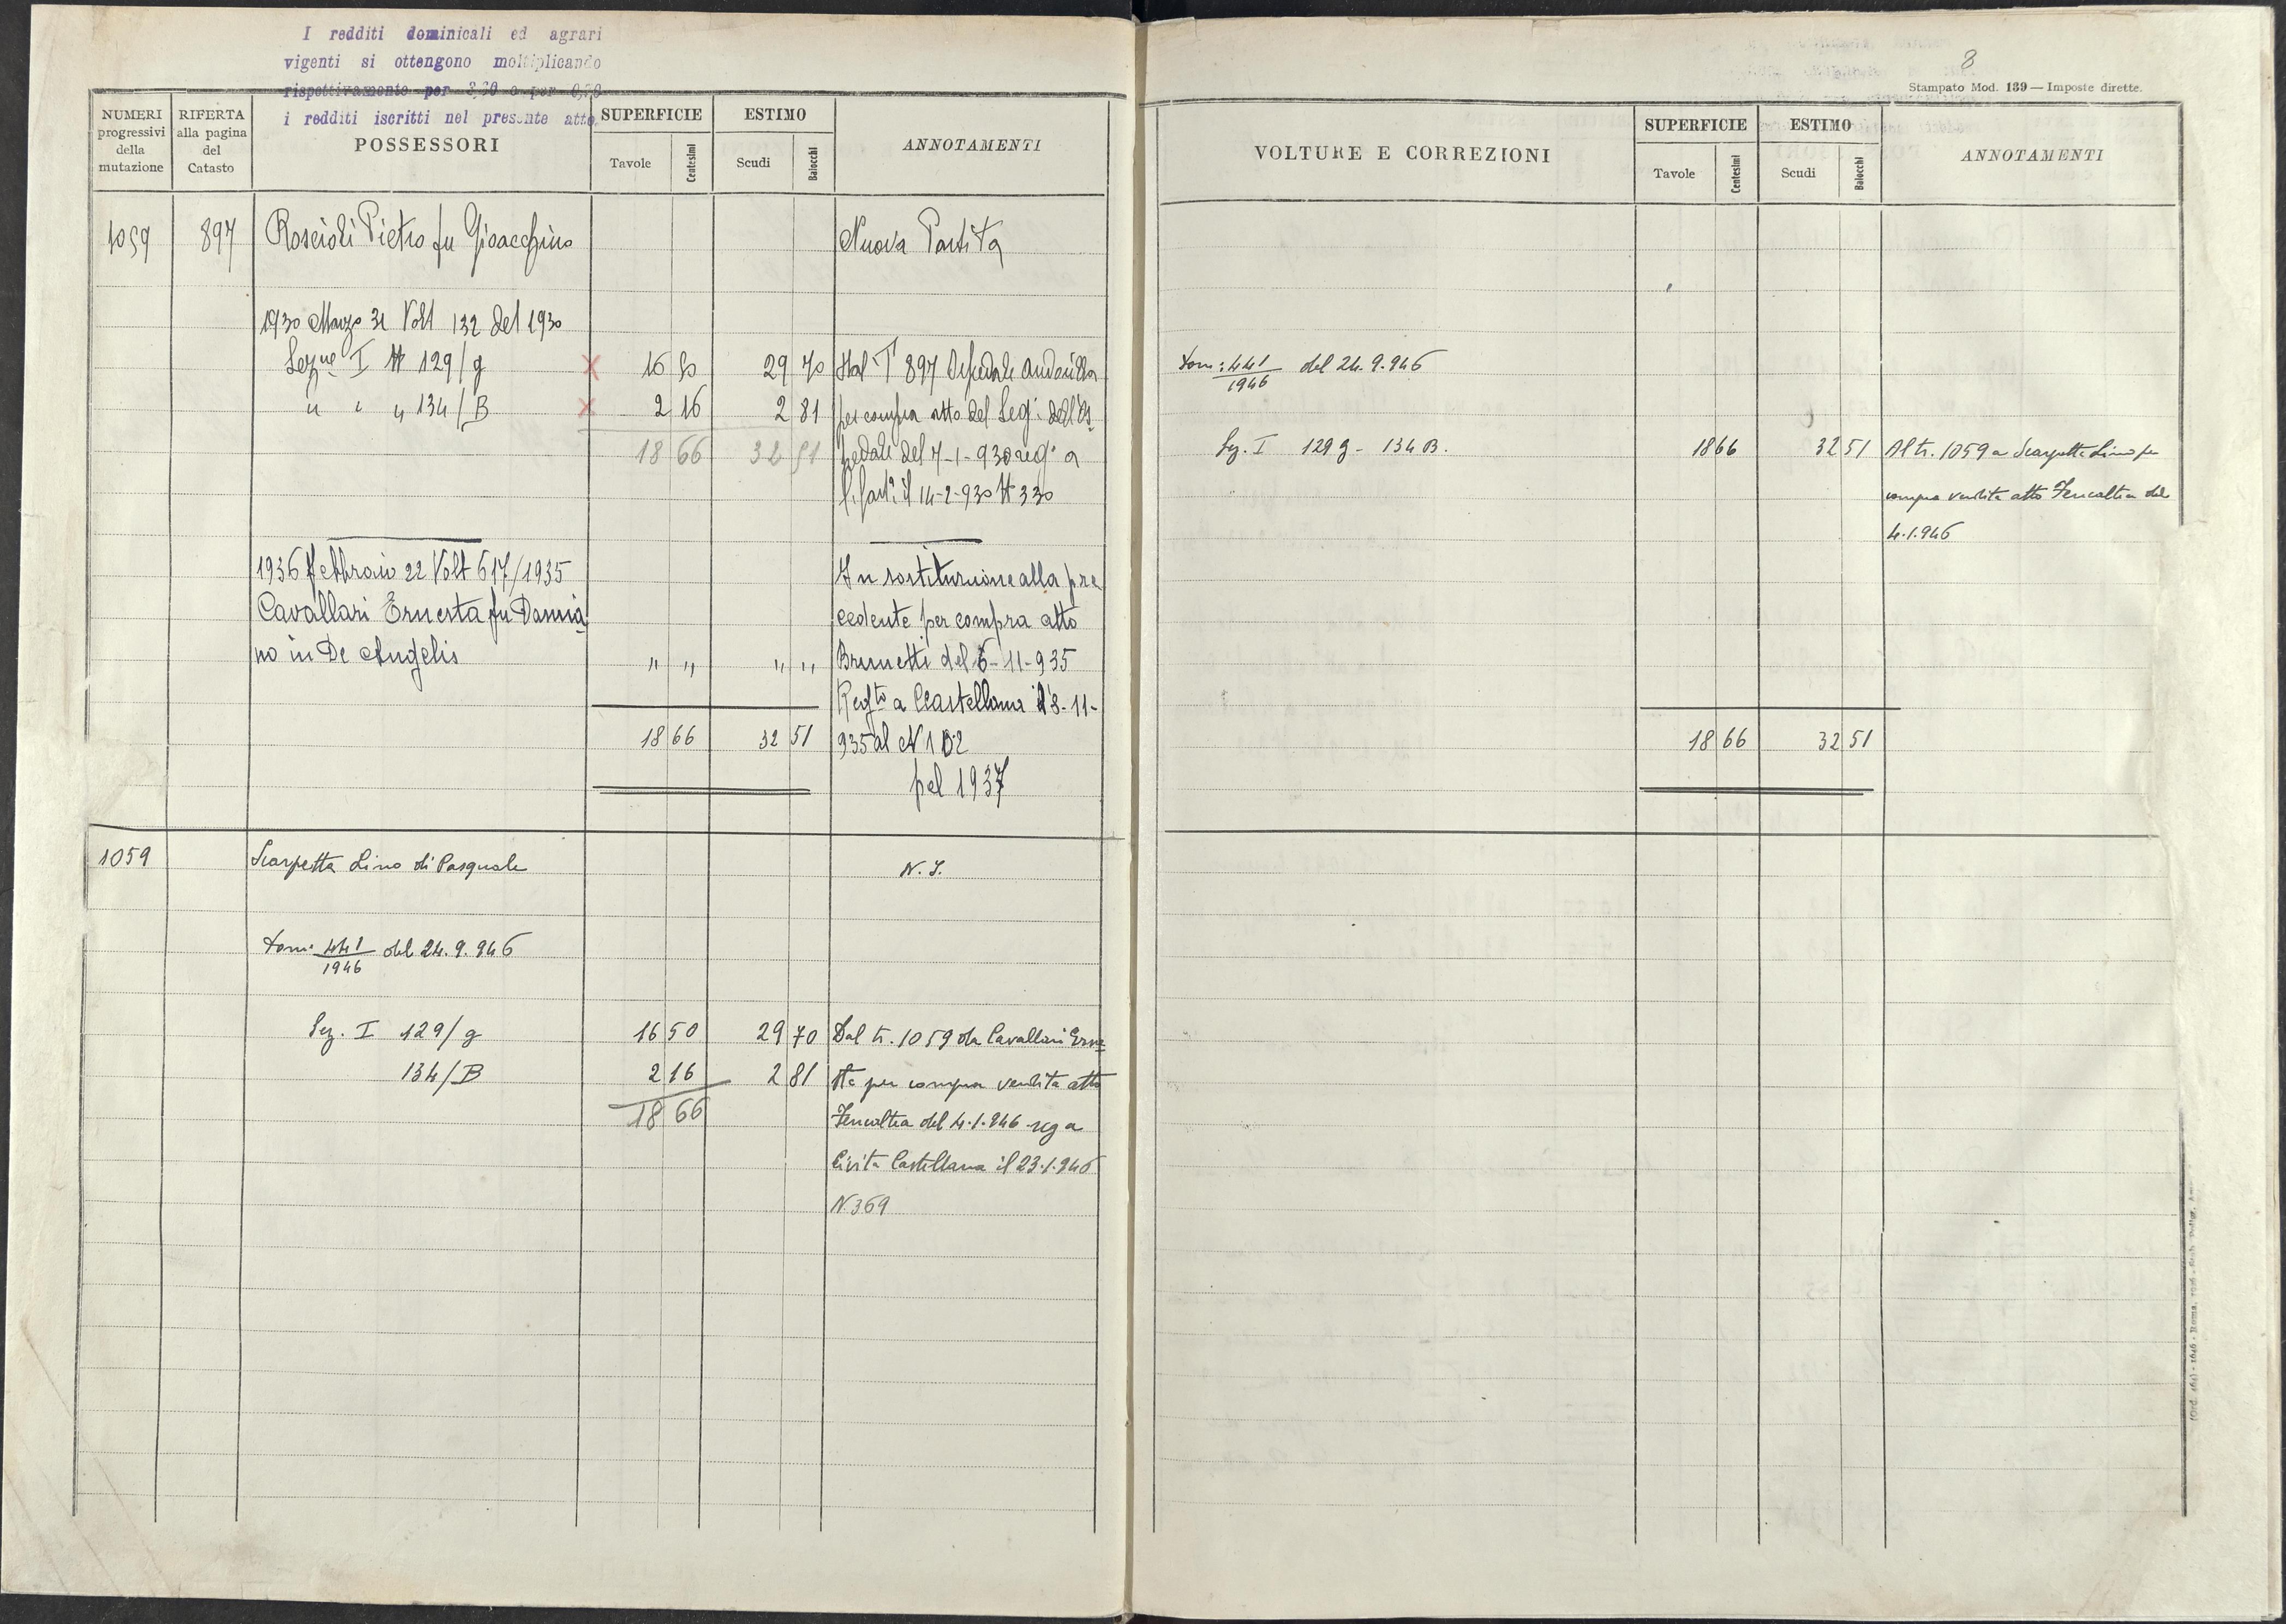 I redditi dominicali ed agrari
vigenti si ottengono moltiplicando
rispettivamente per 3,30 e per 0,50
i redditi iscritti nel presente atto.
NUMERI progressivi della mutazione
RIFERTA alla pagina del Catasto
POSSESSORI
SUPERFICIE
Tavole Centesimi
ESTIMO
Scudi Baiocchi
ANNOTAMENTI
1059 897 Roscioli Pietro fu Gioacchino Nuova Partita
1930 Marzo 31 Volt 132 del 1930
Sezne I N 129/g X 16 50 29 70 Dal T 897 Ospedale Andosilla
" " " 134/B X 2 16 2 81 per compra atto del Seg. dell'Os-
18 66 32 51 pedale del 7-1-930 reg° a
il 14-2-930 N 330
1936 Febbraio 22 Volt 617/1935 In sostituzione alla pre
Cavallari Ernesta fu Damia cedente per compra atto
no in De Angelis " " " " Brunetti del 6-11-935
Regto a CCastellana il 8-11-
18 66 32 51 935 al N 102
pel 1937
1059 Scarpetta Lino di Pasquale N. I.
Dom: 441/1946 del 24.9.946
Sez. I 129/g 16 50 29 70 Dal tr. 1059 da Cavallari Erne
134/B 2 16 2 81 sta per compra vendita atto
18 66 del 4.1.946 reg a
Civita Castellana il 23.1.946
N. 369
8
Stampato Mod. 139 — Imposte dirette.
VOLTURE E CORREZIONI
SUPERFICIE
Tavole Centesimi
ESTIMO
Scudi Baiocchi
ANNOTAMENTI
Dom: 441/1946 del 24.9.946
Sez. I 129 g - 134 B. 18 66 32 51 Al tr. 1059 a Scarpetta Lino per
compra vendita atto del
4.1.946
18 66 32 51